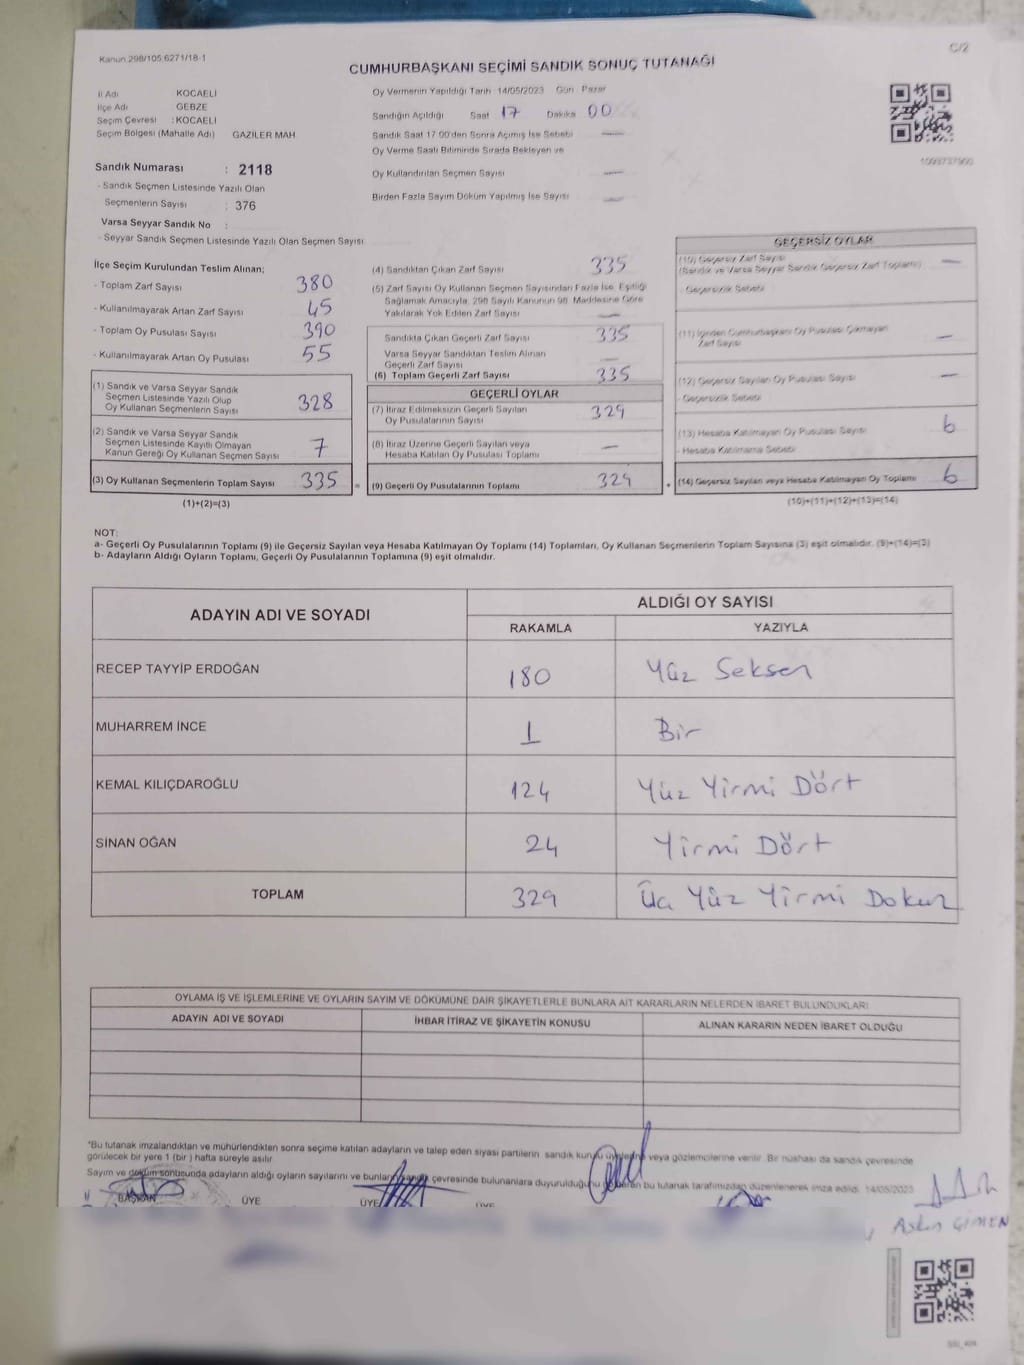 Kanun 298/105,6271/18-1
C/2
CUMHURBAŞKANI SEÇİMİ SANDIK SONUÇ TUTANAĞI
İl Adı KOCAELİ
İlçe Adı GEBZE
Seçim Çevresi : KOCAELİ
Seçim Bölgesi (Mahalle Adı) GAZİLER MAH
Oy Vermenin Yapıldığı Tarih 14/05/2023 Gün Pazar
Sandığın Açıldığı Saat 17 Dakika 00
Sandık Saat 17 00'den Sonra Açılmış İse Sebebi —
Oy Verme Saati Bitiminde Sırada Bekleyen ve
Oy Kullandırılan Seçmen Sayısı —
Birden Fazla Sayım Döküm Yapılmış İse Sayısı —
Sandık Numarası : 2118
- Sandık Seçmen Listesinde Yazılı Olan
Seçmenlerin Sayısı : 376
Varsa Seyyar Sandık No :
- Seyyar Sandık Seçmen Listesinde Yazılı Olan Seçmen Sayısı
İlçe Seçim Kurulundan Teslim Alınan;
- Toplam Zarf Sayısı 380
- Kullanılmayarak Artan Zarf Sayısı 45
- Toplam Oy Pusulası Sayısı 390
- Kullanılmayarak Artan Oy Pusulası 55
(1) Sandık ve Varsa Seyyar Sandık
Seçmen Listesinde Yazılı Olup
Oy Kullanan Seçmenlerin Sayısı 328
(2) Sandık ve Varsa Seyyar Sandık
Seçmen Listesinde Kayıtlı Olmayan
Kanun Gereği Oy Kullanan Seçmen Sayısı 7
(3) Oy Kullanan Seçmenlerin Toplam Sayısı 335 =
(1)+(2)=(3)
(4) Sandıktan Çıkan Zarf Sayısı 335
(5) Zarf Sayısı Oy Kullanan Seçmen Sayısından Fazla İse, Eşitliği
Sağlamak Amacıyla, 298 Sayılı Kanunun 98. Maddesine Göre
Yakılarak Yok Edilen Zarf Sayısı —
Sandıkta Çıkan Geçerli Zarf Sayısı 335
Varsa Seyyar Sandıktan Teslim Alınan
Geçerli Zarf Sayısı —
(6) Toplam Geçerli Zarf Sayısı 335
GEÇERLİ OYLAR
(7) İtiraz Edilmeksizin Geçerli Sayılan
Oy Pusulalarının Sayısı 329
(8) İtiraz Üzerine Geçerli Sayılan veya
Hesaba Katılan Oy Pusulası Toplamı —
(9) Geçerli Oy Pusulalarının Toplamı 329 +
GEÇERSİZ OYLAR
(10) Geçersiz Zarf Sayısı
(Sandık ve Varsa Seyyar Sandık Geçersiz Zarf Toplamı) —
- Geçersizlik Sebebi
(11) İçinden Cumhurbaşkanı Oy Pusulası Çıkmayan
Zarf Sayısı —
(12) Geçersiz Sayılan Oy Pusulası Sayısı —
- Geçersizlik Sebebi
(13) Hesaba Katılmayan Oy Pusulası Sayısı 6
- Hesaba Katılmama Sebebi
(14) Geçersiz Sayılan veya Hesaba Katılmayan Oy Toplamı 6
(10)+(11)+(12)+(13)=(14)
NOT:
a- Geçerli Oy Pusulalarının Toplamı (9) ile Geçersiz Sayılan veya Hesaba Katılmayan Oy Toplamı (14) Toplamları, Oy Kullanan Seçmenlerin Toplam Sayısına (3) eşit olmalıdır. (9)+(14)=(3)
b- Adayların Aldığı Oyların Toplamı, Geçerli Oy Pusulalarının Toplamına (9) eşit olmalıdır.
ADAYIN ADI VE SOYADI
ALDIĞI OY SAYISI
RAKAMLA YAZIYLA
RECEP TAYYİP ERDOĞAN 180 Yüz Seksen
MUHARREM İNCE 1 Bir
KEMAL KILIÇDAROĞLU 124 Yüz Yirmi Dört
SİNAN OĞAN 24 Yirmi Dört
TOPLAM 329 Üç Yüz Yirmi Dokuz
OYLAMA İŞ VE İŞLEMLERİNE VE OYLARIN SAYIM VE DÖKÜMÜNE DAİR ŞİKAYETLERLE BUNLARA AİT KARARLARIN NELERDEN İBARET BULUNDUKLARI
ADAYIN ADI VE SOYADI İHBAR İTİRAZ VE ŞİKAYETİN KONUSU ALINAN KARARIN NEDEN İBARET OLDUĞU
*Bu tutanak imzalandıktan ve mühürlendikten sonra seçime katılan adayların ve talep eden siyasi partilerin sandık kurulu üyelerine veya gözlemcilerine verilir. Bir nüshası da sandık çevresinde
görülecek bir yere 1 (bir) hafta süreyle asılır
Sayım ve döküm sonucunda adayların aldığı oyların sayılarını ve bunların sandık çevresinde bulunanlara duyurulduğunu gösteren bu tutanak tarafımızdan düzenlenerek imza edildi. 14/05/2023
BAŞKAN ÜYE ÜYE ÜYE